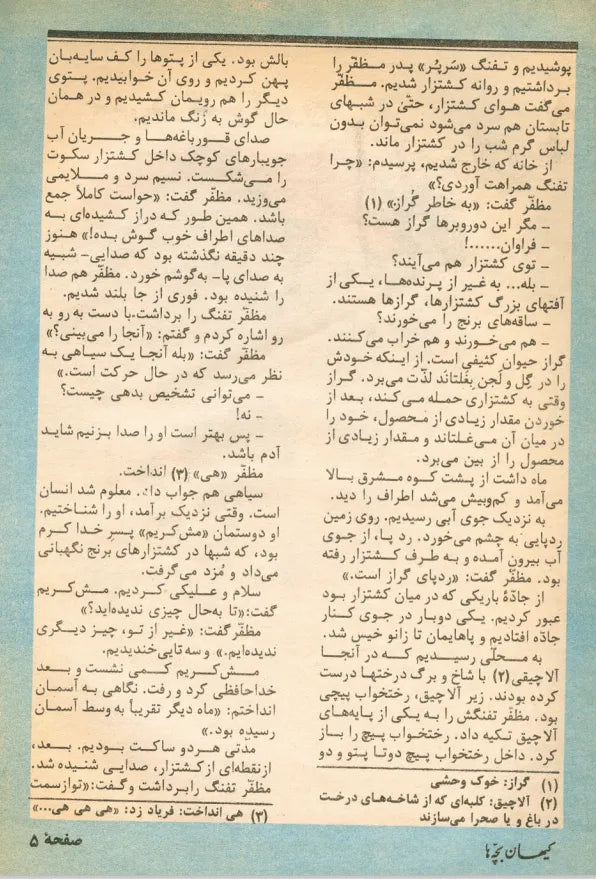 پوشیدیم و تفنگ «سَرپُر» پدر مظفّر را
برداشتیم و روانه کشتزار شدیم. مظفّر
می‌گفت هوای کشتزار، حتّی در شبهای
تابستان هم سرد می‌شود نمی‌توان بدون
لباس گرم شب را در کشتزار ماند.
از خانه که خارج شدیم، پرسیدم: «چرا
تفنگ همراهت آوردی؟»
مظفّر گفت: «به خاطر گُراز.» (۱)
- مگر این دوروبرها گراز هست؟
- فراوان......!
- توی کشتزار هم می‌آیند؟
- بله... به غیر از پرنده‌ها، یکی از
آفتهای بزرگ کشتزارها، گرازها هستند.
- ساقه‌های برنج را می‌خورند؟
- هم می‌خورند و هم خراب می‌کنند.
گراز حیوان کثیفی است. از اینکه خودش
را در گِل و لَجن بِغَلتاند لذّت می‌برد. گراز
وقتی به کشتزاری حمله می‌کند، بعد از
خوردن مقدار زیادی از محصول، خود را
در میان آن می‌غلتاند و مقدار زیادی از
محصول را از بین می‌برد.
ماه داشت از پشت کوه مشرق بالا
می‌آمد و کم‌وبیش می‌شد اطراف را دید.
به نزدیک جوی آبی رسیدیم. روی زمین
ردپایی به چشم می‌خورد. رد پا، از جوی
آب بیرون آمده و به طرف کشتزار رفته
بود. مظفّر گفت: «ردپای گراز است.»
از جادّهٔ باریکی که در میان کشتزار بود
عبور کردیم. یکی دوبار در جوی کنار
جادّه افتادیم و پاهایمان تا زانو خیس شد.
به محلّی رسیدیم که در آنجا
آلاچیقی (۲) با شاخ و برگ درختها درست
کرده بودند. زیر آلاچیق، رختخواب پیچی
بود. مظفّر تفنگش را به یکی از پایه‌های
آلاچیق تکیه داد. رختخواب پیچ را باز
کرد. داخل رختخواب پیچ دوتا پتو و دو
(۱) گراز: خوک وحشی
(۲) آلاچیق: کلبه‌ای که از شاخه‌های درخت
در باغ و یا صحرا می‌سازند
بالش بود. یکی از پتوها را کف سایه‌بان
پهن کردیم و روی آن خوابیدیم. پتوی
دیگر را هم رویمان کشیدیم و در همان
حال گوش به زنگ ماندیم.
صدای قورباغه‌ها و جریان آب
جویبارهای کوچک داخل کشتزار سکوت
را می‌شکست. نسیم سرد و ملایمی
می‌وزید. مظفّر گفت: «حواست کاملاً جمع
باشد. همین طور که دراز کشیده‌ای به
صداهای اطراف خوب گوش بده!» هنوز
چند دقیقه نگذشته بود که صدایی- شبیه
به صدای پا- به‌گوشم خورد. مظفّر هم صدا
را شنیده بود. فوری از جا بلند شدیم.
مظفّر تفنگ را برداشت. با دست به رو به
رو اشاره کردم و گفتم: «آنجا را می‌بینی؟»
مظفّر گفت: «بله آنجا یک سیاهی به
نظر می‌رسد که در حال حرکت است.»
- می‌توانی تشخیص بدهی چیست؟
- نه!
- پس بهتر است او را صدا بزنیم شاید
آدم باشد.
مظفّر «هی» (۳) انداخت.
سیاهی هم جواب داد. معلوم شد انسان
است. وقتی نزدیک برآمد، او را شناختیم.
او دوستمان «مش‌کریم» پسر خدا کرم
بود، که شبها در کشتزارهای برنج نگهبانی
می‌داد و مُزد می‌گرفت.
سلام و علیکی کردیم. مش‌کریم
گفت: «تا به‌حال چیزی ندیده‌اید؟»
مظفّر گفت: «غیر از تو، چیز دیگری
ندیده‌ایم.» و سه تایی خندیدیم.
مش‌کریم کمی نشست و بعد
خداحافظی کرد و رفت. نگاهی به آسمان
انداختم: «ماه دیگر تقریباً به وسط آسمان
رسیده بود.»
مدّتی هردو ساکت بودیم. بعد،
ازنقطه‌ای از کشتزار، صدایی شنیده شد.
مظفّر تفنگ را برداشت و گفت: «تو از سمت
(۳) هی انداخت: فریاد زد: «هی هی هی...»
کیهان بچّه‌ها
صفحهٔ ۵